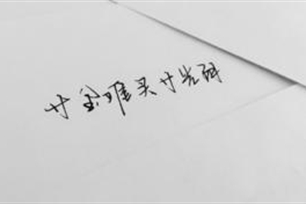 寸金难买寸光阴